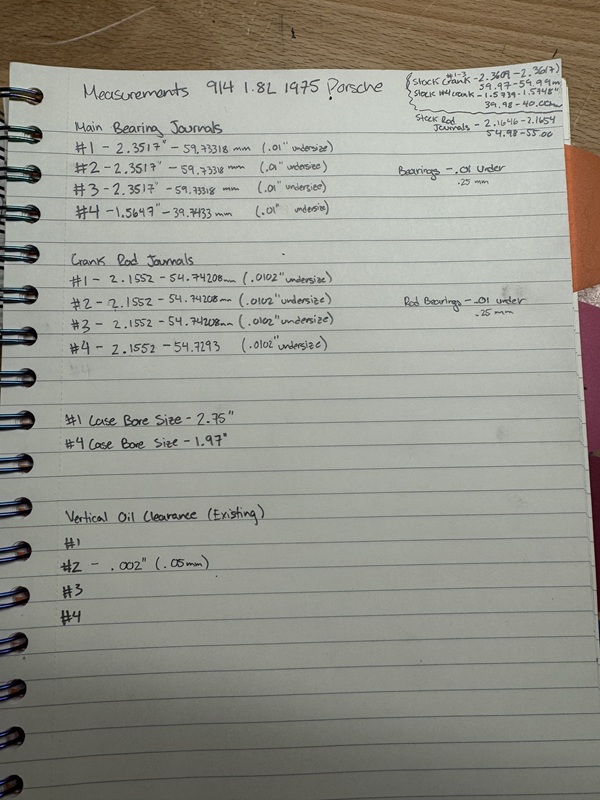 Measurements 914 1.8L 1975 Porsche
#1-3
Stock Crank - 2.3609 - 2.3617
59.97 - 59.99m
Stock #4 Crank - 1.5739 - 1.5748"
39.98 - 40.00mm
Stock Rod Journals - 2.1646 - 2.1654
54.98 - 55.00
Main Bearing Journals
#1 - 2.3517" - 59.73318 mm (.01" undersize)
#2 - 2.3517" - 59.73318 mm (.01" undersize)
#3 - 2.3517" - 59.73318 mm (.01" undersize)
#4 - 1.5647" - 39.7433 mm (.01" undersize)
Bearings - .01 Under
.25 mm
Crank Rod Journals
#1 - 2.1552 - 54.74208mm (.0102" undersize)
#2 - 2.1552 - 54.74208mm (.0102" undersize)
#3 - 2.1552 - 54.74208mm (.0102" undersize)
#4 - 2.1552 - 54.7293 (.0102" undersize)
Rod Bearings - .01 under
.25 mm
#1 Case Bore Size - 2.75"
#4 Case Bore Size - 1.97"
Vertical Oil Clearance (Existing)
#1
#2 - .002" (.05mm)
#3
#4